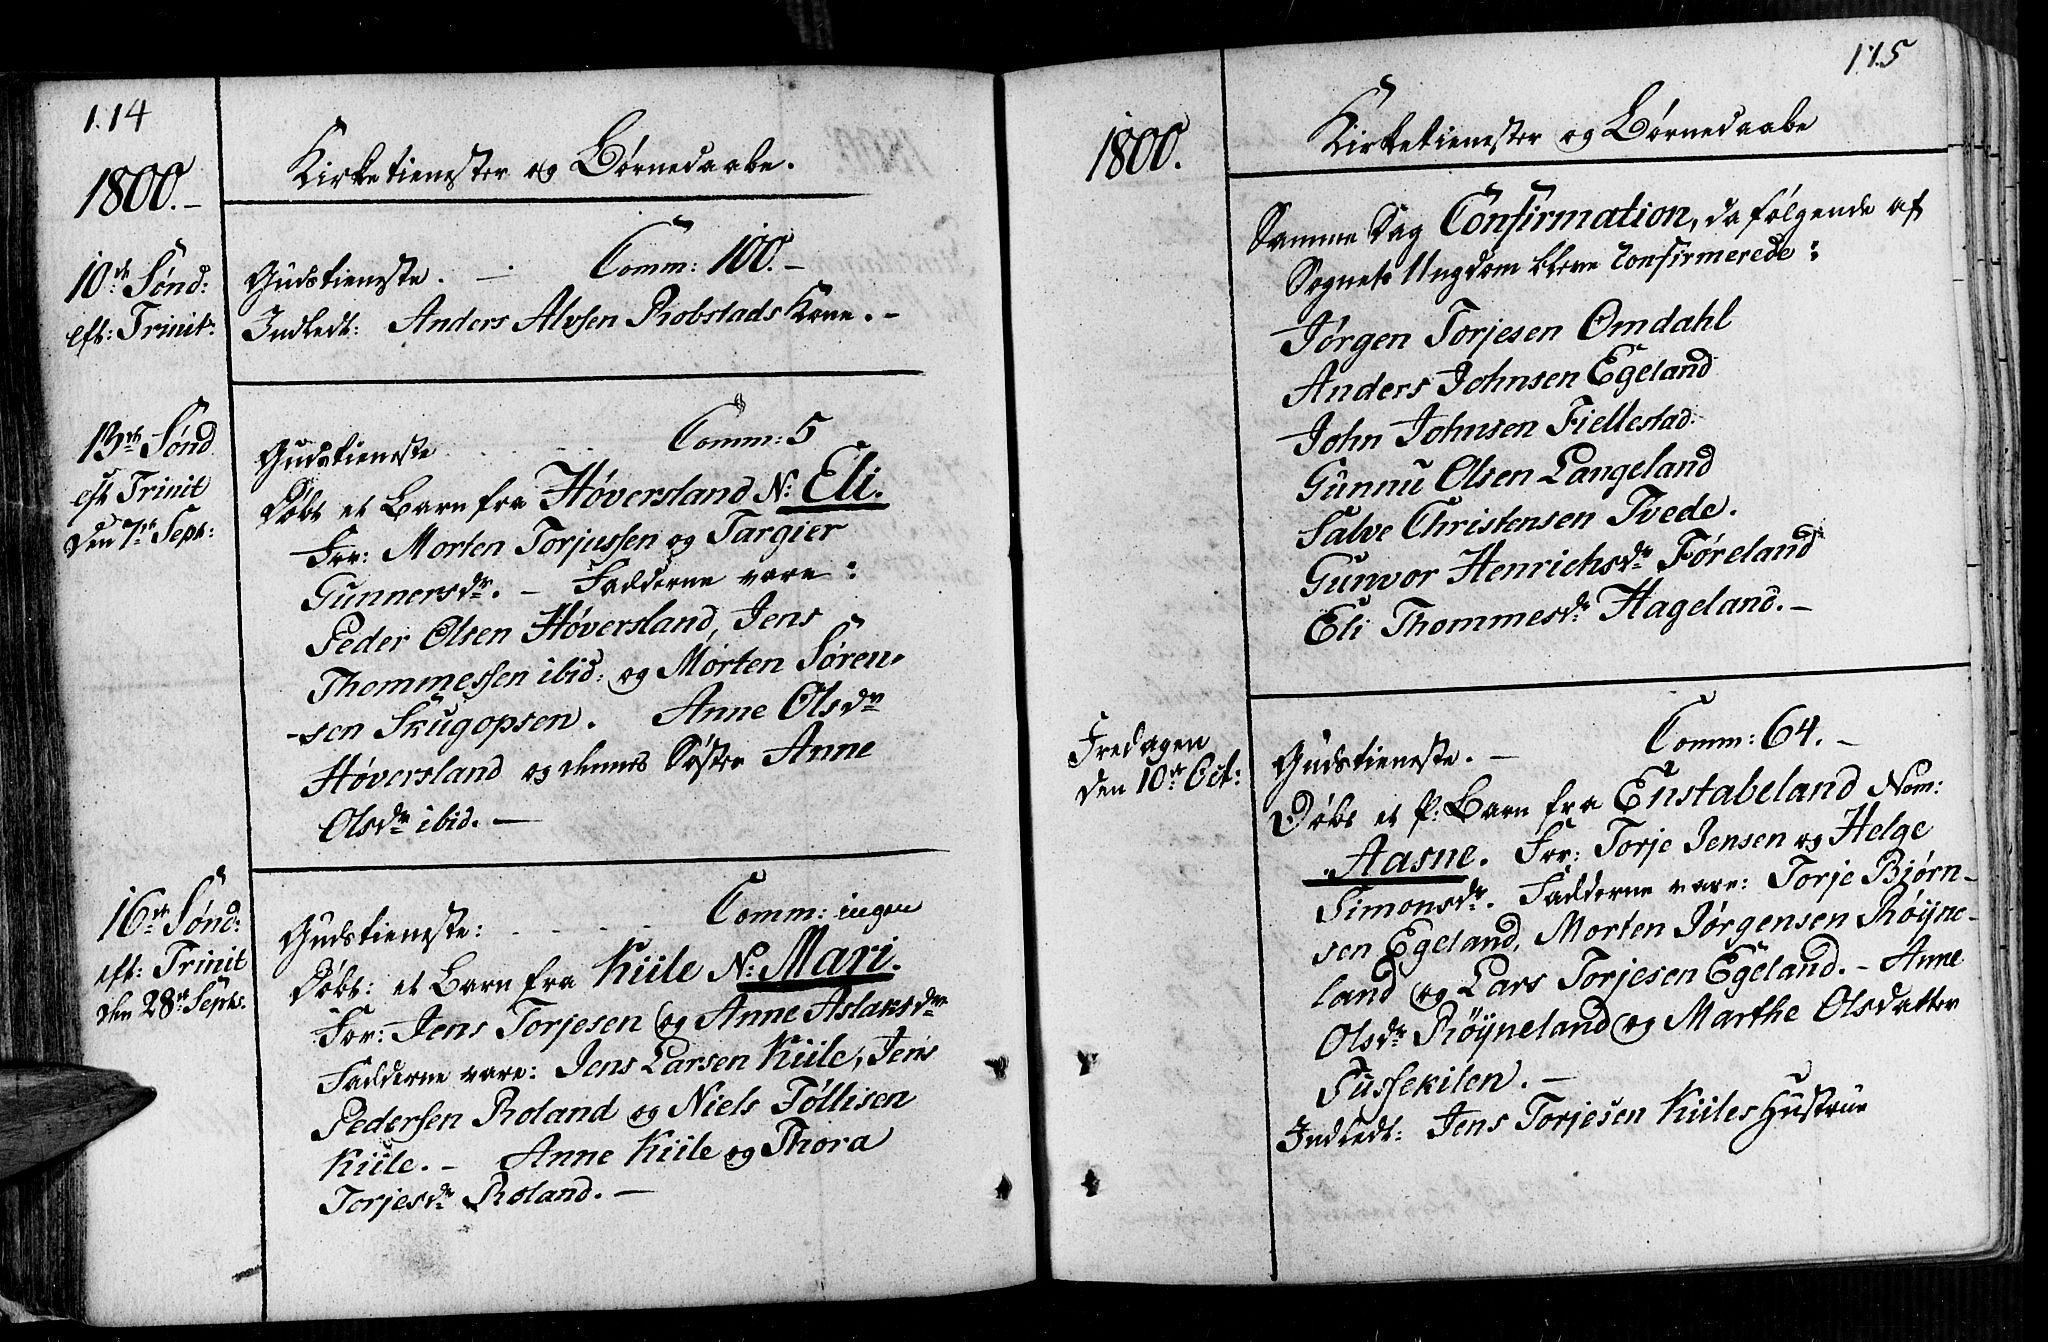 114
1800.–
Kirketienester og Børnedaabe.
10de Sønd:
eft: Trinit:
Gudstieneste. – Comm: 100.–
Indledt: Anders Alvsen Robstads Kone. –
13de Sønd
eft Trinit
den 7de Sept:
Gudstieneste . . . . . . Comm: 5
Døbt et Barn fra Høversland N: Eli.
For: Morten Torjussen og Targier
Gunnersdr. – Fadderne vare:
Peder Olsen Høversland, Jens
Thommessen ibid: og Mørten Søren-
-sen Skugopsen. Anne Olsdr
Høversland og dennes Søster Anne
Olsdr ibid. –
16de Sønd:
eft: Trinit
den 28de Septr.
Gudstieneste: . . . . . Comm: ingen
Døbt: et Barn fra Kiile N: Mari.
For: Jens Torjesen og Anne Aslaksdr
Fadderne vare: Jens Larsen Kiile, Jens
Pedersen Roland og Niels Tøllisen
Kiile. – Anne Kiile og Thora
Torjesdr Roland. –
115
1800.
Kirketienester og Børnedaabe
Samme Dag Confirmation, da følgende af
Sognets Ungdom bleve Confirmerede:
Jørgen Torjesen Omdahl
Anders Johnsen Egeland
John Johnsen Fiellestad
Gunnu Olsen Langeland
Salve Christensen Tvede.
Gunvor Henrichsdr Føreland
Eli Thommesdr Hageland. –
Fredagen
den 10de Oct:
Gudstieneste. – Comm: 64. –
Døbt et p: Barn fra Enstabeland Nom:
Aasne. For: Torje Jensen og Helge
Simonsdr. Fadderne vare: Torje Bjørn-
sen Egeland, Morten Jørgensen Røyne-
land og Lars Torjesen Egeland. – Anne
Olsdr Røyneland og Marthe Olsdatter
Fussekilen. –
Indledt: Jens Torjesen Kiiles Hustrue